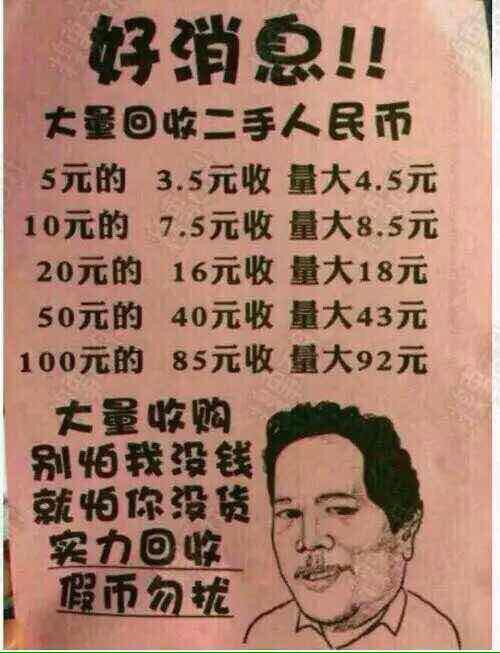 好消息!!
大量回收二手人民币
5元的 3.5元收 量大4.5元
10元的 7.5元收 量大8.5元
20元的 16元收 量大18元
50元的 40元收 量大43元
100元的 85元收 量大92元
大量收购
别怕我没钱
就怕你没货
实力回收
假币勿扰